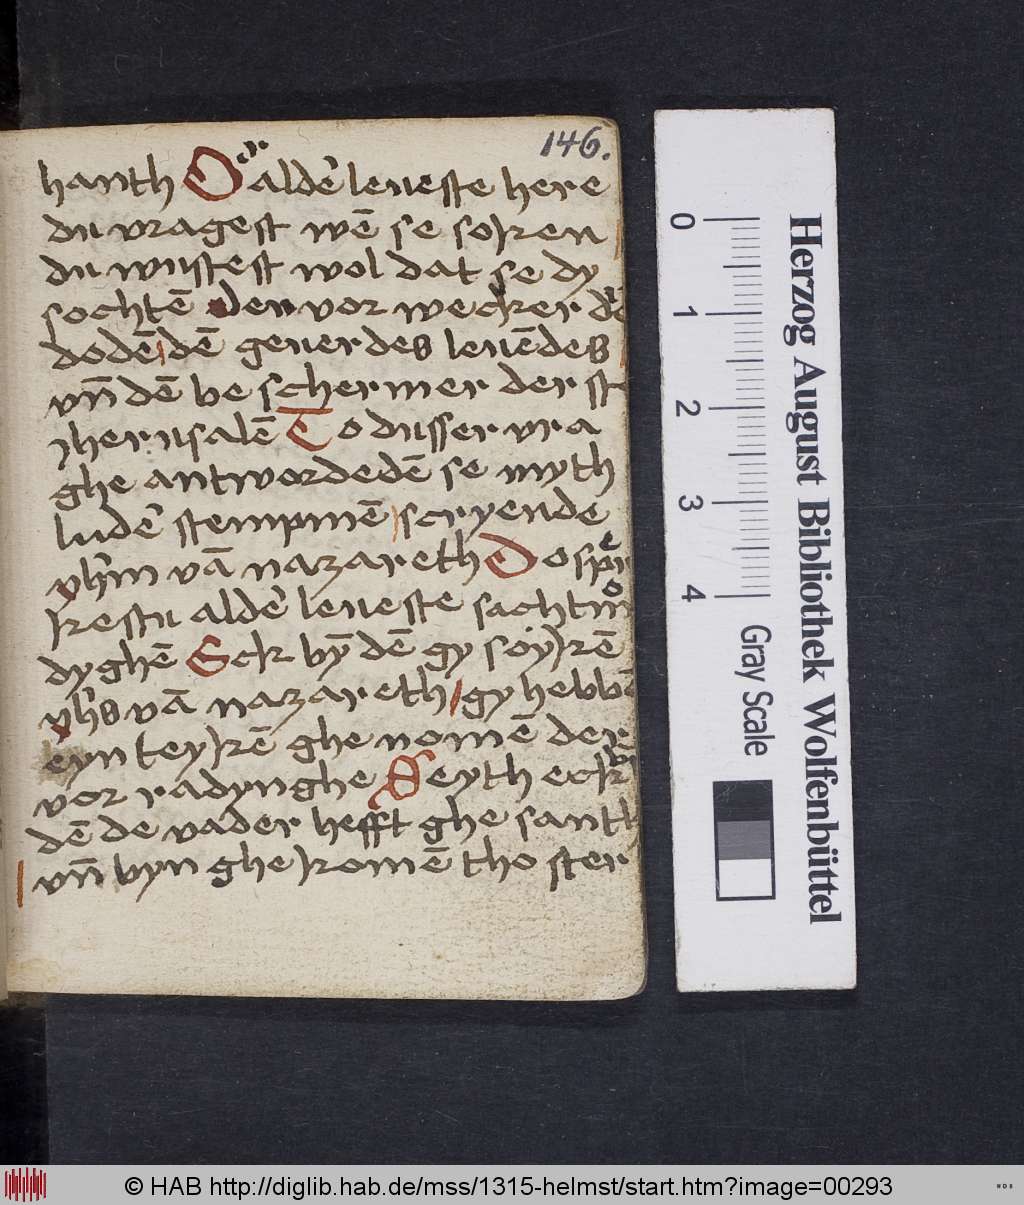 146.
hanth O alde͛ leueste here
du vragest wē se soken
du wuistest wol dat se dy
sochtē den vor wecker d͛e
dodē dē geuer des leuēdes
vn̄ dē be schermer der st
jherusalē To dusser vra
ghe antwordedē se myth
lude͛ stempmē scryende
yh̄m vā nazareth Do sp
kestu alde͛ leueste sachtm
dyghē Eck bȳ dē gy soykē
yh̄s vā nazareth gy hebbē
eyn teykē ghe nomē der
vor radynghe Seyth eck
dē de vader hefft ghe santh
vn̄ byn ghe komē tho ster
0
1
2
3
4
Gray Scale
Herzog August Bibliothek Wolfenbüttel
© HAB http://diglib.hab.de/mss/1315-helmst/start.htm?image=00293